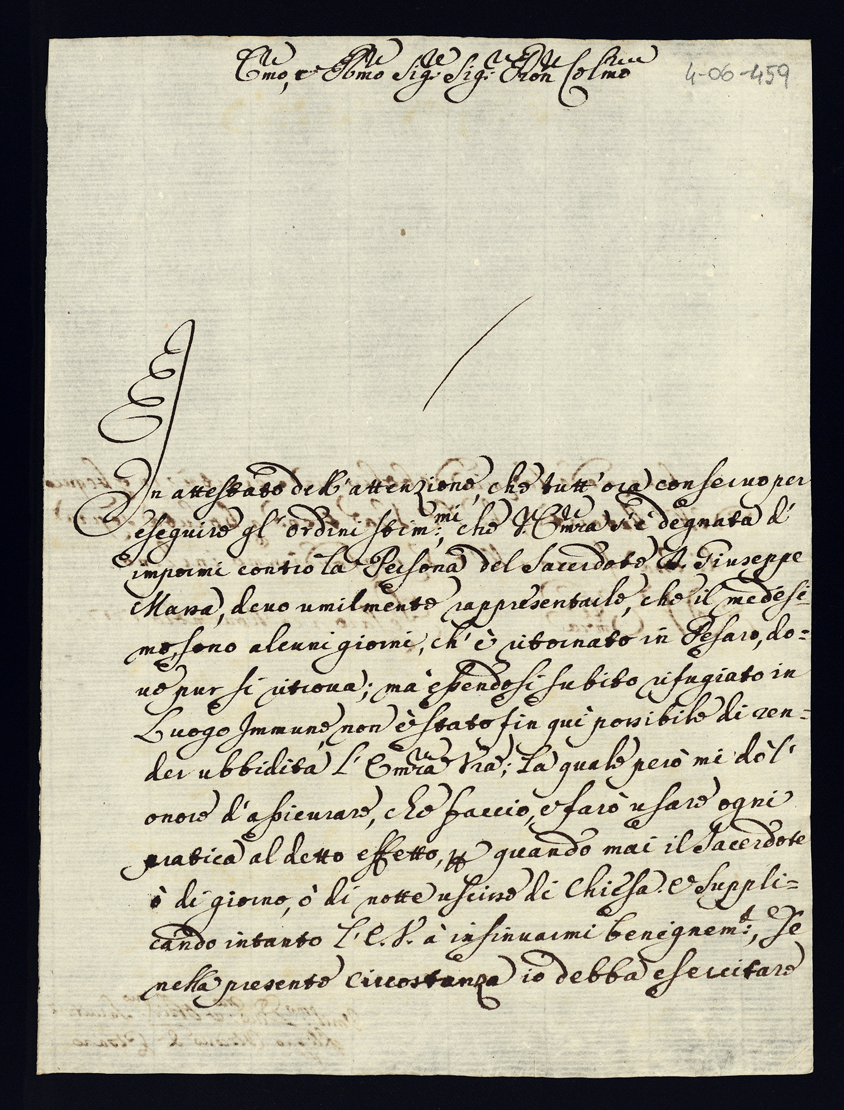 Emo, e Rmo Sig.re Sig.r Pron Colmo
4-06-459
In attestato dell'attenzione, che tutt'ora conservo per
eseguire gl'ordini stim:mi, che V. Emza s'è degnata d'
impormi contro la Persona del Sacerdote D. Giuseppe
Massa, devo umilmente rappresentarle, che il medesi=
mo, sono alcuni giorni, ch'è ritornato in Pesaro, do=
ve pur si ritrova; mà essendosi subito rifugiato in
Luogo Immune, non è stato fin quì possibile di ren=
der ubbidita l'Emza Vra; la quale però mi dò l'
onore d'assicurare, che faccio, e farò usare ogni
pratica al detto effetto, se quando mai il Sacerdote
ò di giorno, ò di notte uscisse di Chiesa. E suppli=
cando intanto l'E. V. à insinuarmi benignem.te, se
nella presente circostanza io debba esercitare